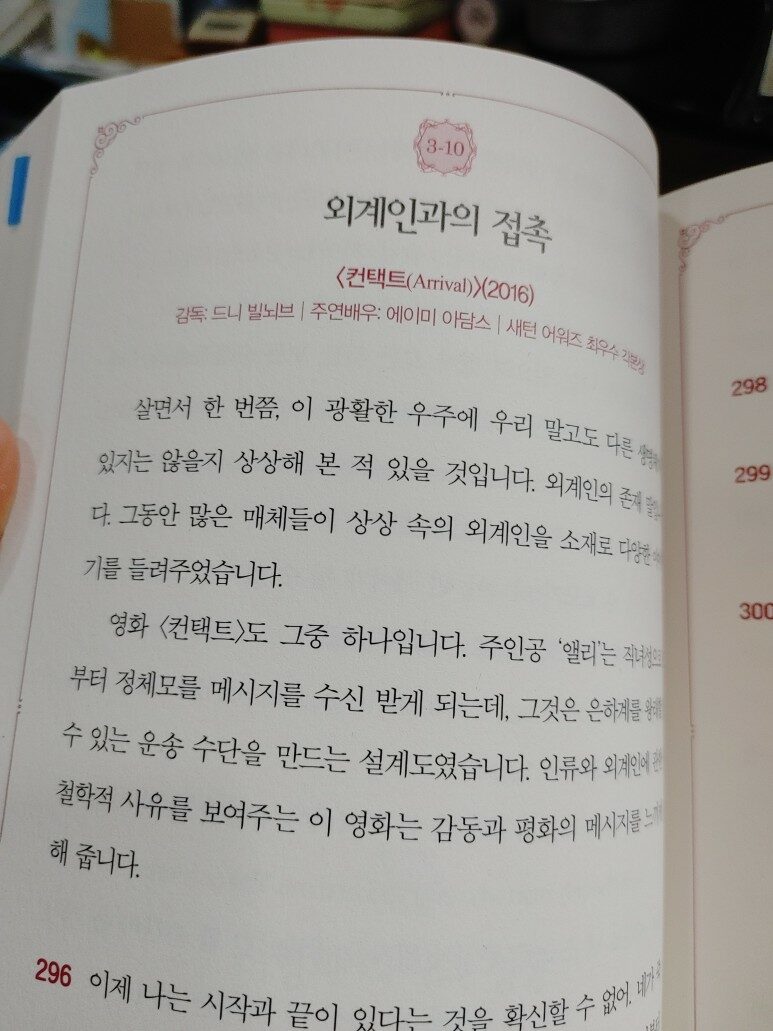 3-10
외계인과의 접촉
〈컨택트(Arrival)〉(2016)
감독: 드니 빌뇌브 | 주연배우: 에이미 아담스 | 새턴 어워즈 최우수 각본상
살면서 한 번쯤, 이 광활한 우주에 우리 말고도 다른
있지는 않을지 상상해 본 적 있을 것입니다. 외계인의 존재
다. 그동안 많은 매체들이 상상 속의 외계인을 소재로 다양한
기를 들려주었습니다.
영화 〈컨택트〉도 그중 하나입니다. 주인공 ‘앨리’는 직녀성으로
부터 정체모를 메시지를 수신 받게 되는데, 그것은 은하계를
수 있는 운송 수단을 만드는 설계도였습니다. 인류와 외계인에
철학적 사유를 보여주는 이 영화는 감동과 평화의 메시지를
해 줍니다.
296 이제 나는 시작과 끝이 있다는 것을 확신할 수 없어. 네가
298
299
300